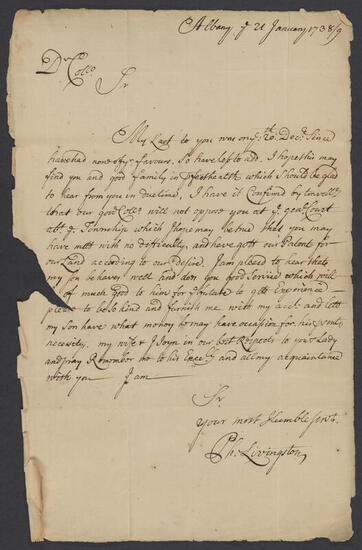 Albany ye 21 January 1738/9
Dr
Collo.
Sr
My Last to you was on ye 20th. Decr. Since
have had none of yr. favours. So have less to add. I hope this may
find you and good family in perfect health which I Should be glad
to hear from you in due time, I have it Confirmd by travellrs
that our good Collo. will not oppose you at ye genll Court
abt ye Township which I hope may be true that you may
have mett with no difficulty, and have gott our Patent for
our Land according to our Desire. I am pleasd to hear that
my Son behaves well and does you good Service which will
of much good to him for future to gett Experience
please to be So kind and furnish me with my acct. and lett
my Son have what money he may have occasion for his
necessity. my wife & I Joyn in our best Respects to your Lady
and pray Remember me to his Excey. and all my acquaintance
with you I am
Sr.
Your most Humble Servt.
Ph: Livingston